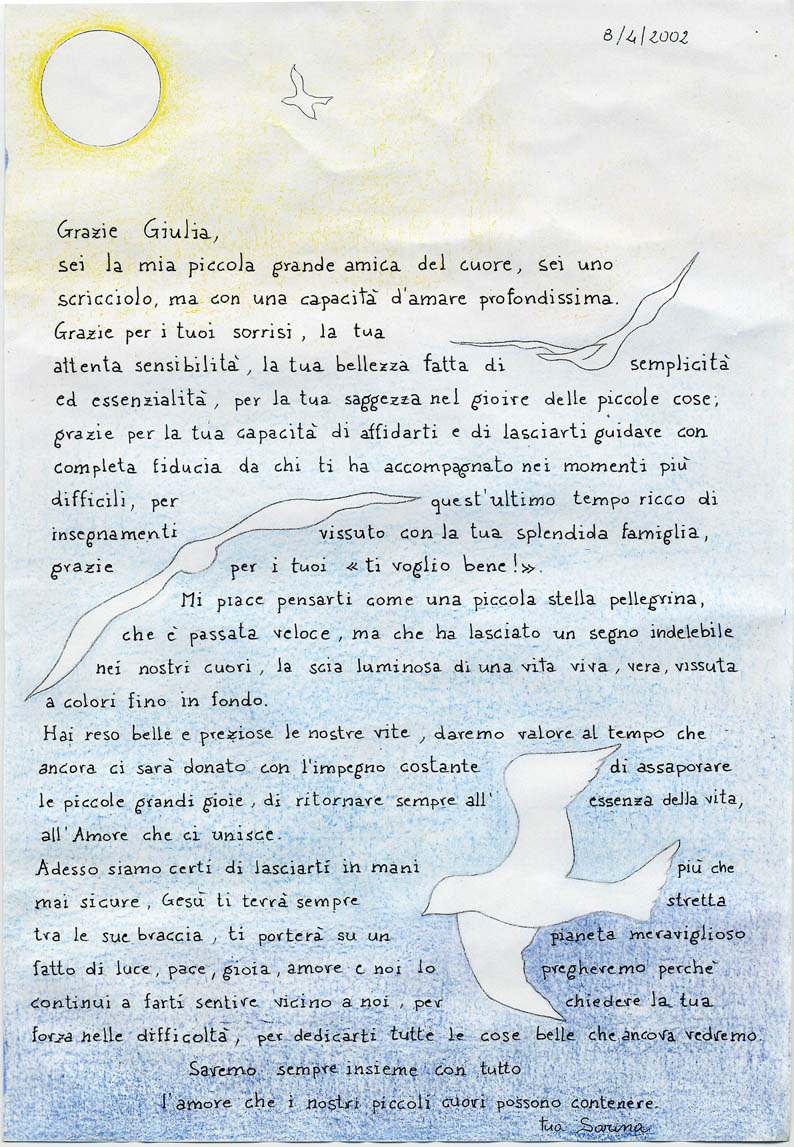 8/4/2002
Grazie Giulia,
sei la mia piccola grande amica del cuore, sei uno
scricciolo, ma con una capacità d'amare profondissima.
Grazie per i tuoi sorrisi, la tua
attenta sensibilità, la tua bellezza fatta di semplicità
ed essenzialità, per la tua saggezza nel gioire delle piccole cose;
grazie per la tua capacità di affidarti e di lasciarti guidare con
completa fiducia da chi ti ha accompagnato nei momenti più
difficili, per quest'ultimo tempo ricco di
insegnamenti vissuto con la tua splendida famiglia,
grazie per i tuoi «ti voglio bene!».
Mi piace pensarti come una piccola stella pellegrina,
che è passata veloce, ma che ha lasciato un segno indelebile
nei nostri cuori, la scia luminosa di una vita viva, vera, vissuta
a colori fino in fondo.
Hai reso belle e preziose le nostre vite, daremo valore al tempo che
ancora ci sarà donato con l'impegno costante di assaporare
le piccole grandi gioie, di ritornare sempre all' essenza della vita,
all'Amore che ci unisce.
Adesso siamo certi di lasciarti in mani più che
mai sicure, Gesù ti terrà sempre stretta
tra le sue braccia, ti porterà su un pianeta meraviglioso
fatto di luce, pace, gioia, amore e noi lo pregheremo perchè
continui a farti sentire vicino a noi, per chiedere la tua
forza nelle difficoltà, per dedicarti tutte le cose belle che ancora vedremo.
Saremo sempre insieme con tutto
l'amore che i nostri piccoli cuori possono contenere.
tua Sarina